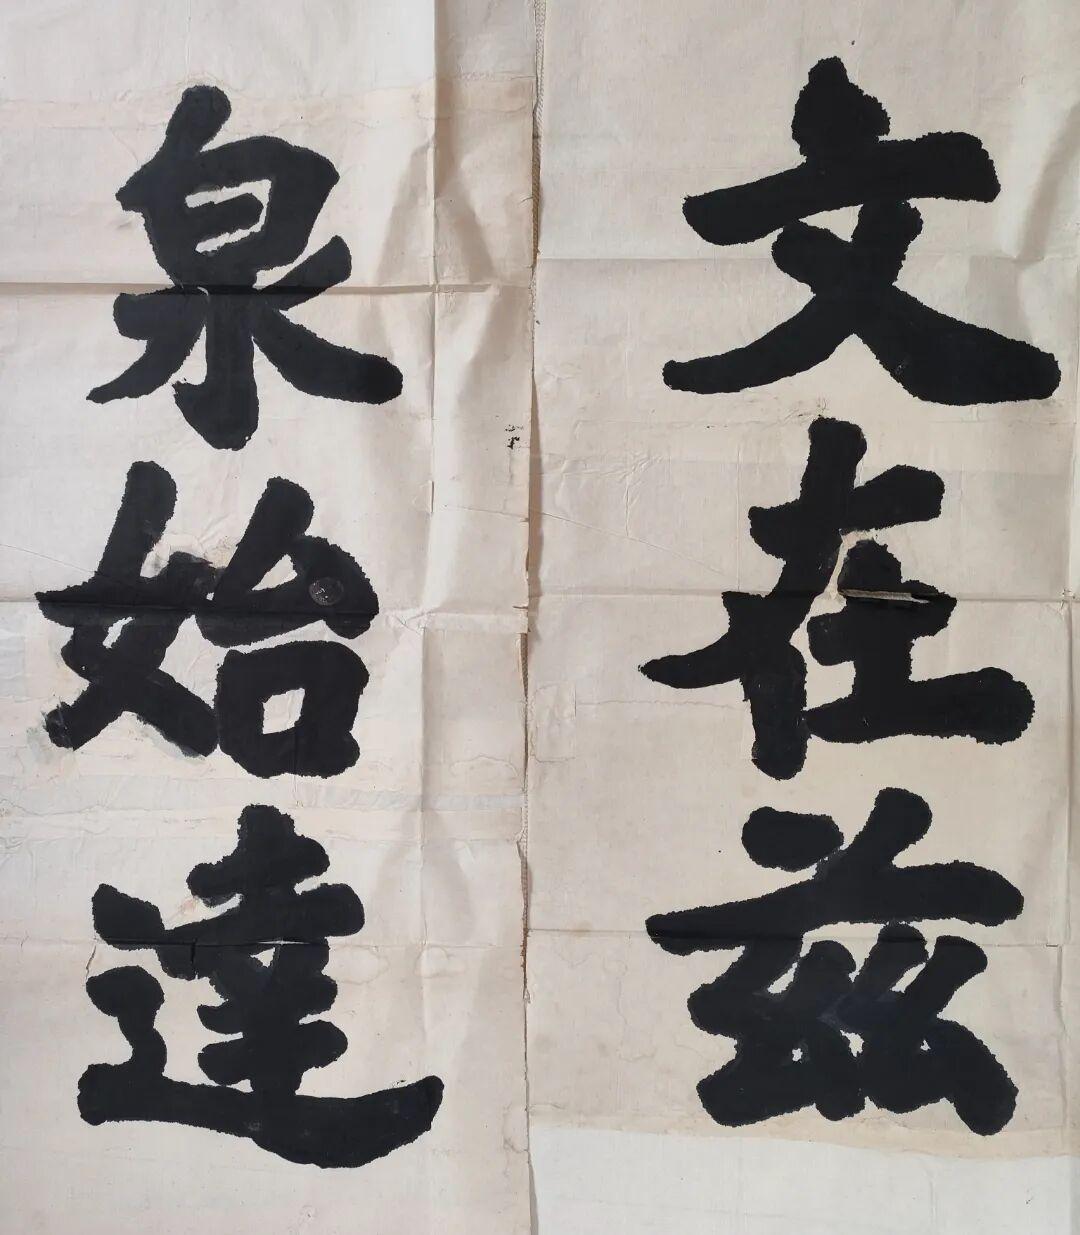 文在兹
泉始達